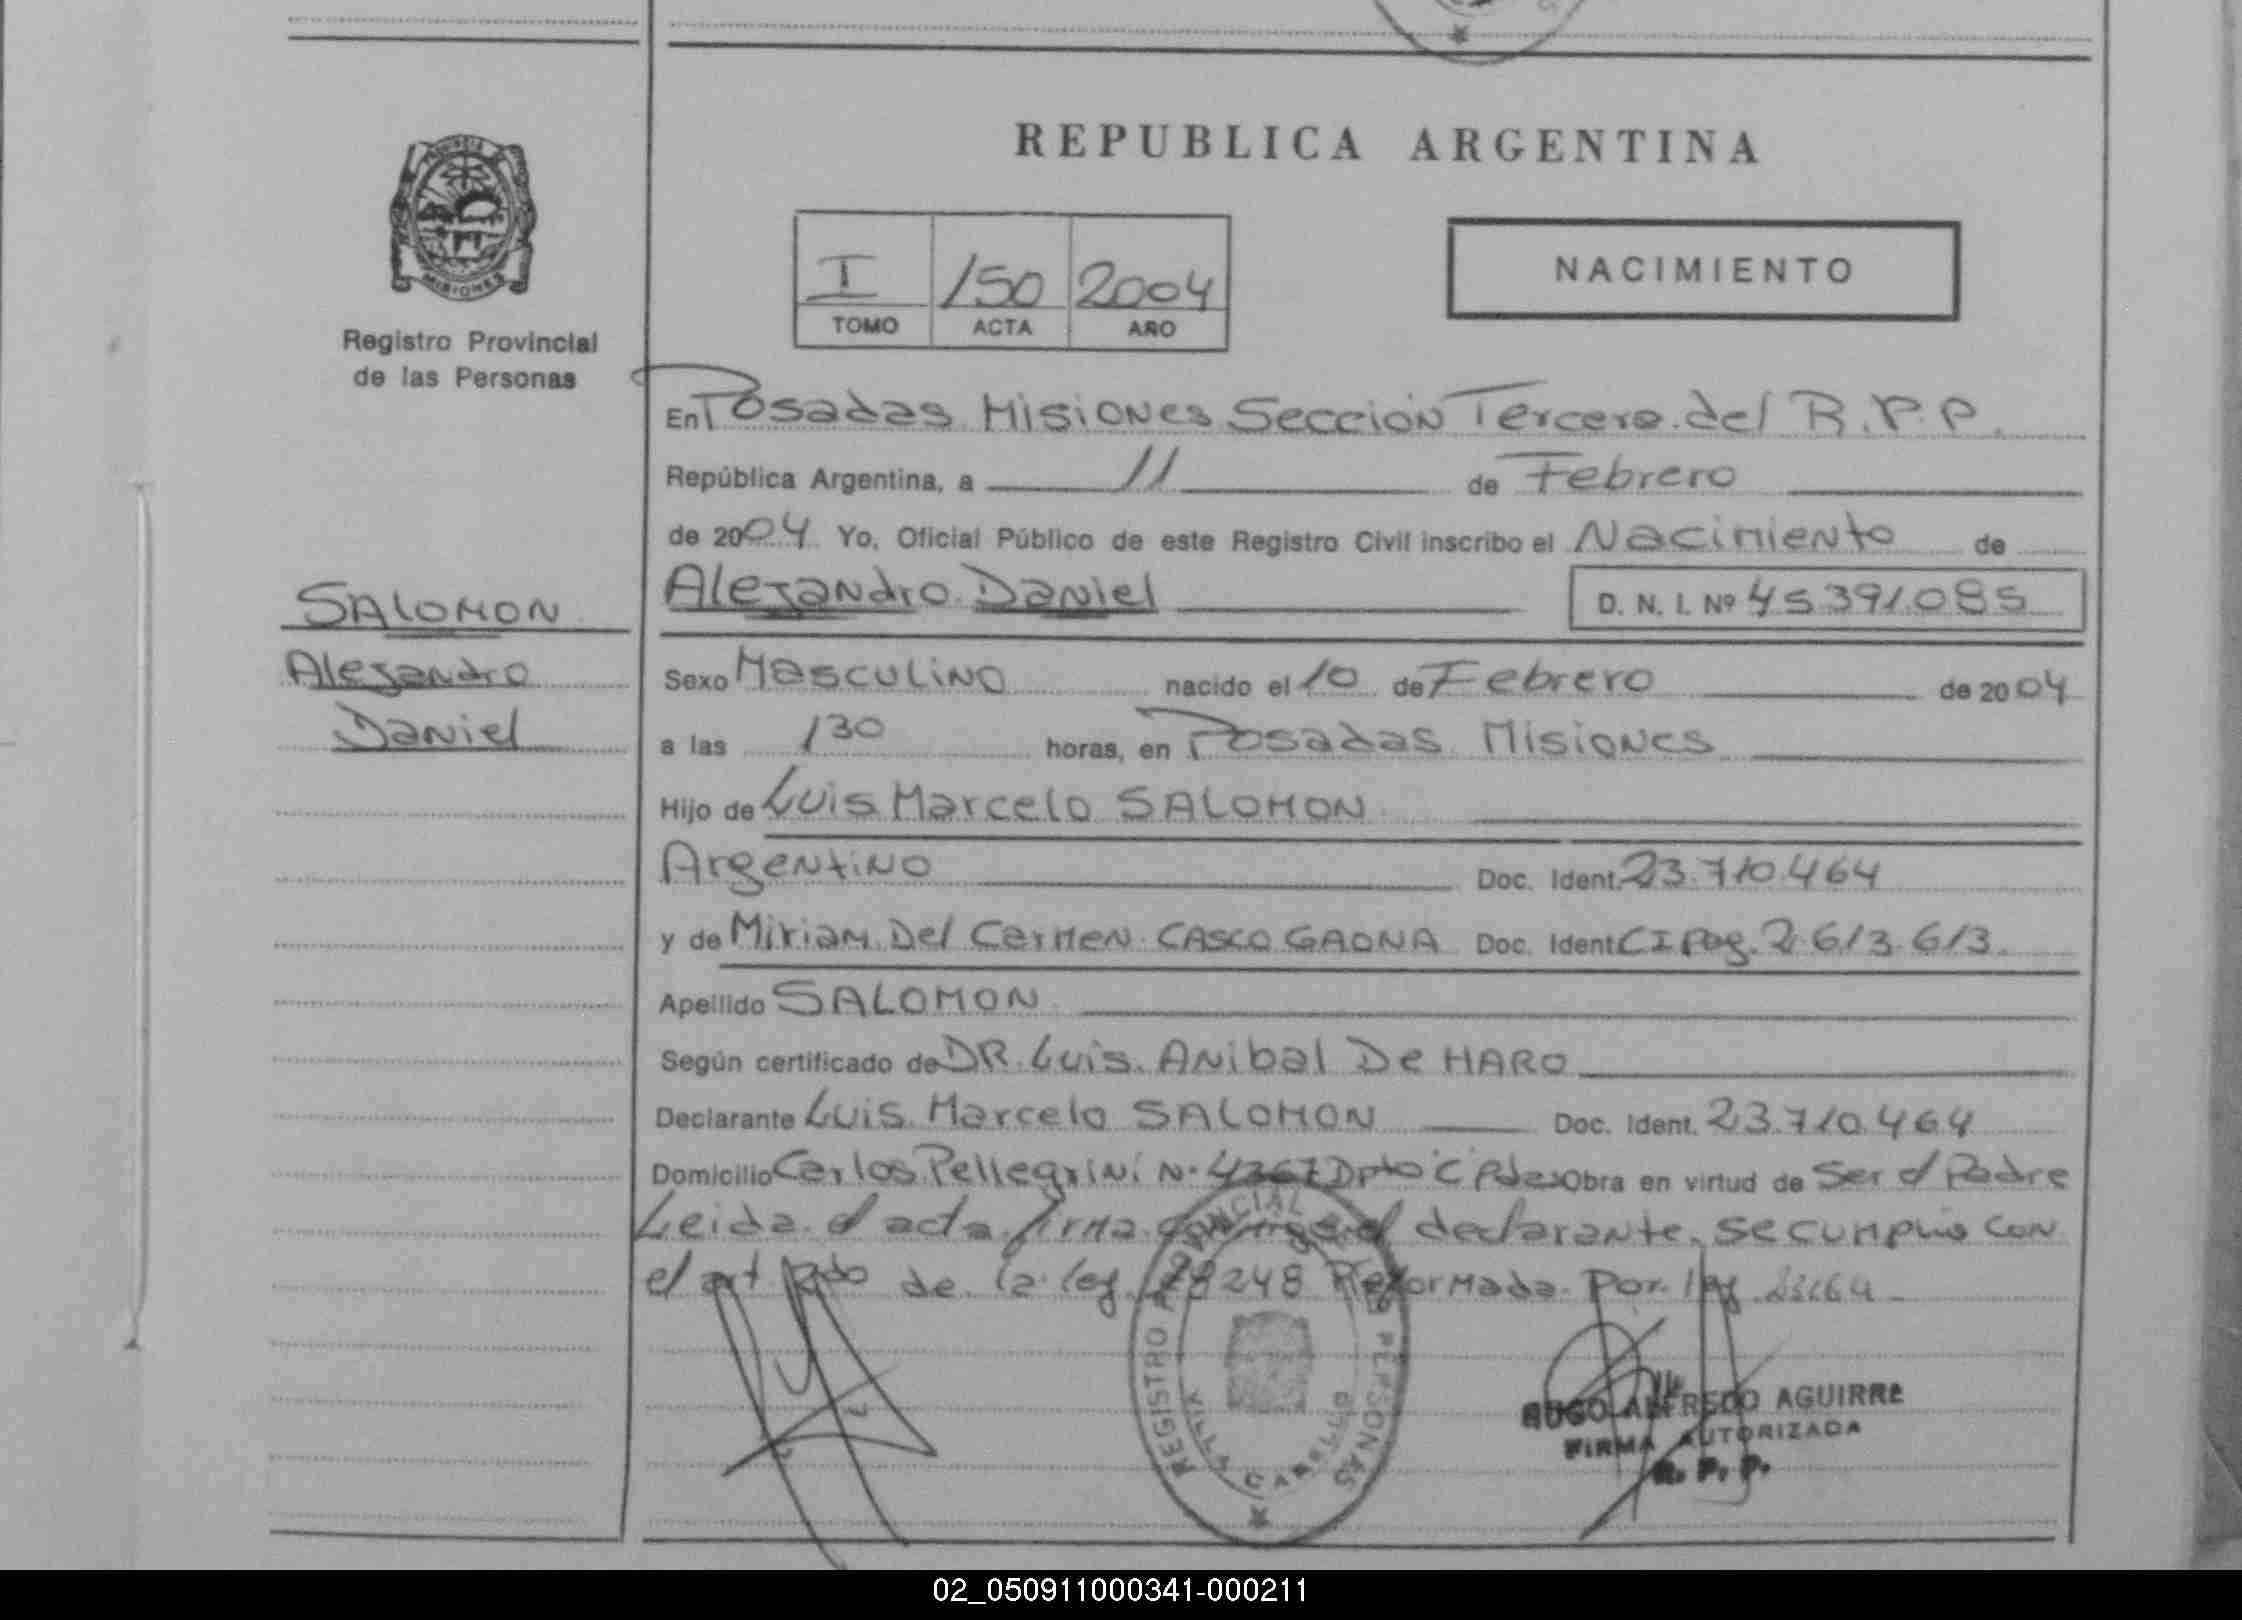 PROVINCIA DE
MISIONES
Registro Provincial
de las Personas
SALOMON
Alejandro
Daniel
REPUBLICA ARGENTINA
I 150 2004
TOMO ACTA AÑO
NACIMIENTO
En Posadas Misiones Sección Tercera del R.P.P.
República Argentina, a 11 de Febrero
de 2004 Yo, Oficial Público de este Registro Civil inscribo el Nacimiento de
Alejandro Daniel D. N. I. Nº 45391085
Sexo Masculino nacido el 10 de Febrero de 2004
a las 1 30 horas, en Posadas Misiones
Hijo de Luis Marcelo SALOMON
Argentino Doc. Ident. 23.710.464
y de Miriam Del Carmen CASCO GAONA Doc. Ident. CI Pag. 2.613.613.
Apellido SALOMON
Según certificado de DR. Luis Anibal De HARO
Declarante Luis Marcelo SALOMON Doc. Ident. 23.710.464
Domicilio Carlos Pellegrini Nº 4367 Dpto C Pdas Obra en virtud de Ser el Padre
Leida el acta firma conmigo el declarante. se cumplio con
el art 2do de la ley 18248 Reformada Por ley 23264
REGISTRO PROVINCIAL DE LAS PERSONAS
VILLA CABELLO
HUGO ALFREDO AGUIRRE
FIRMA AUTORIZADA
R. P. P.
02_050911000341-000211